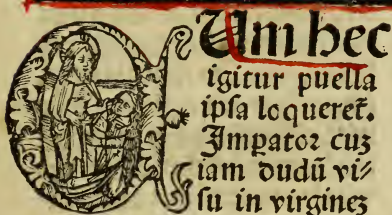 CUm hec
igitur puella
ipsa loqueret̄.
Impator cuz
iam dudū vi⸗
su in virginez